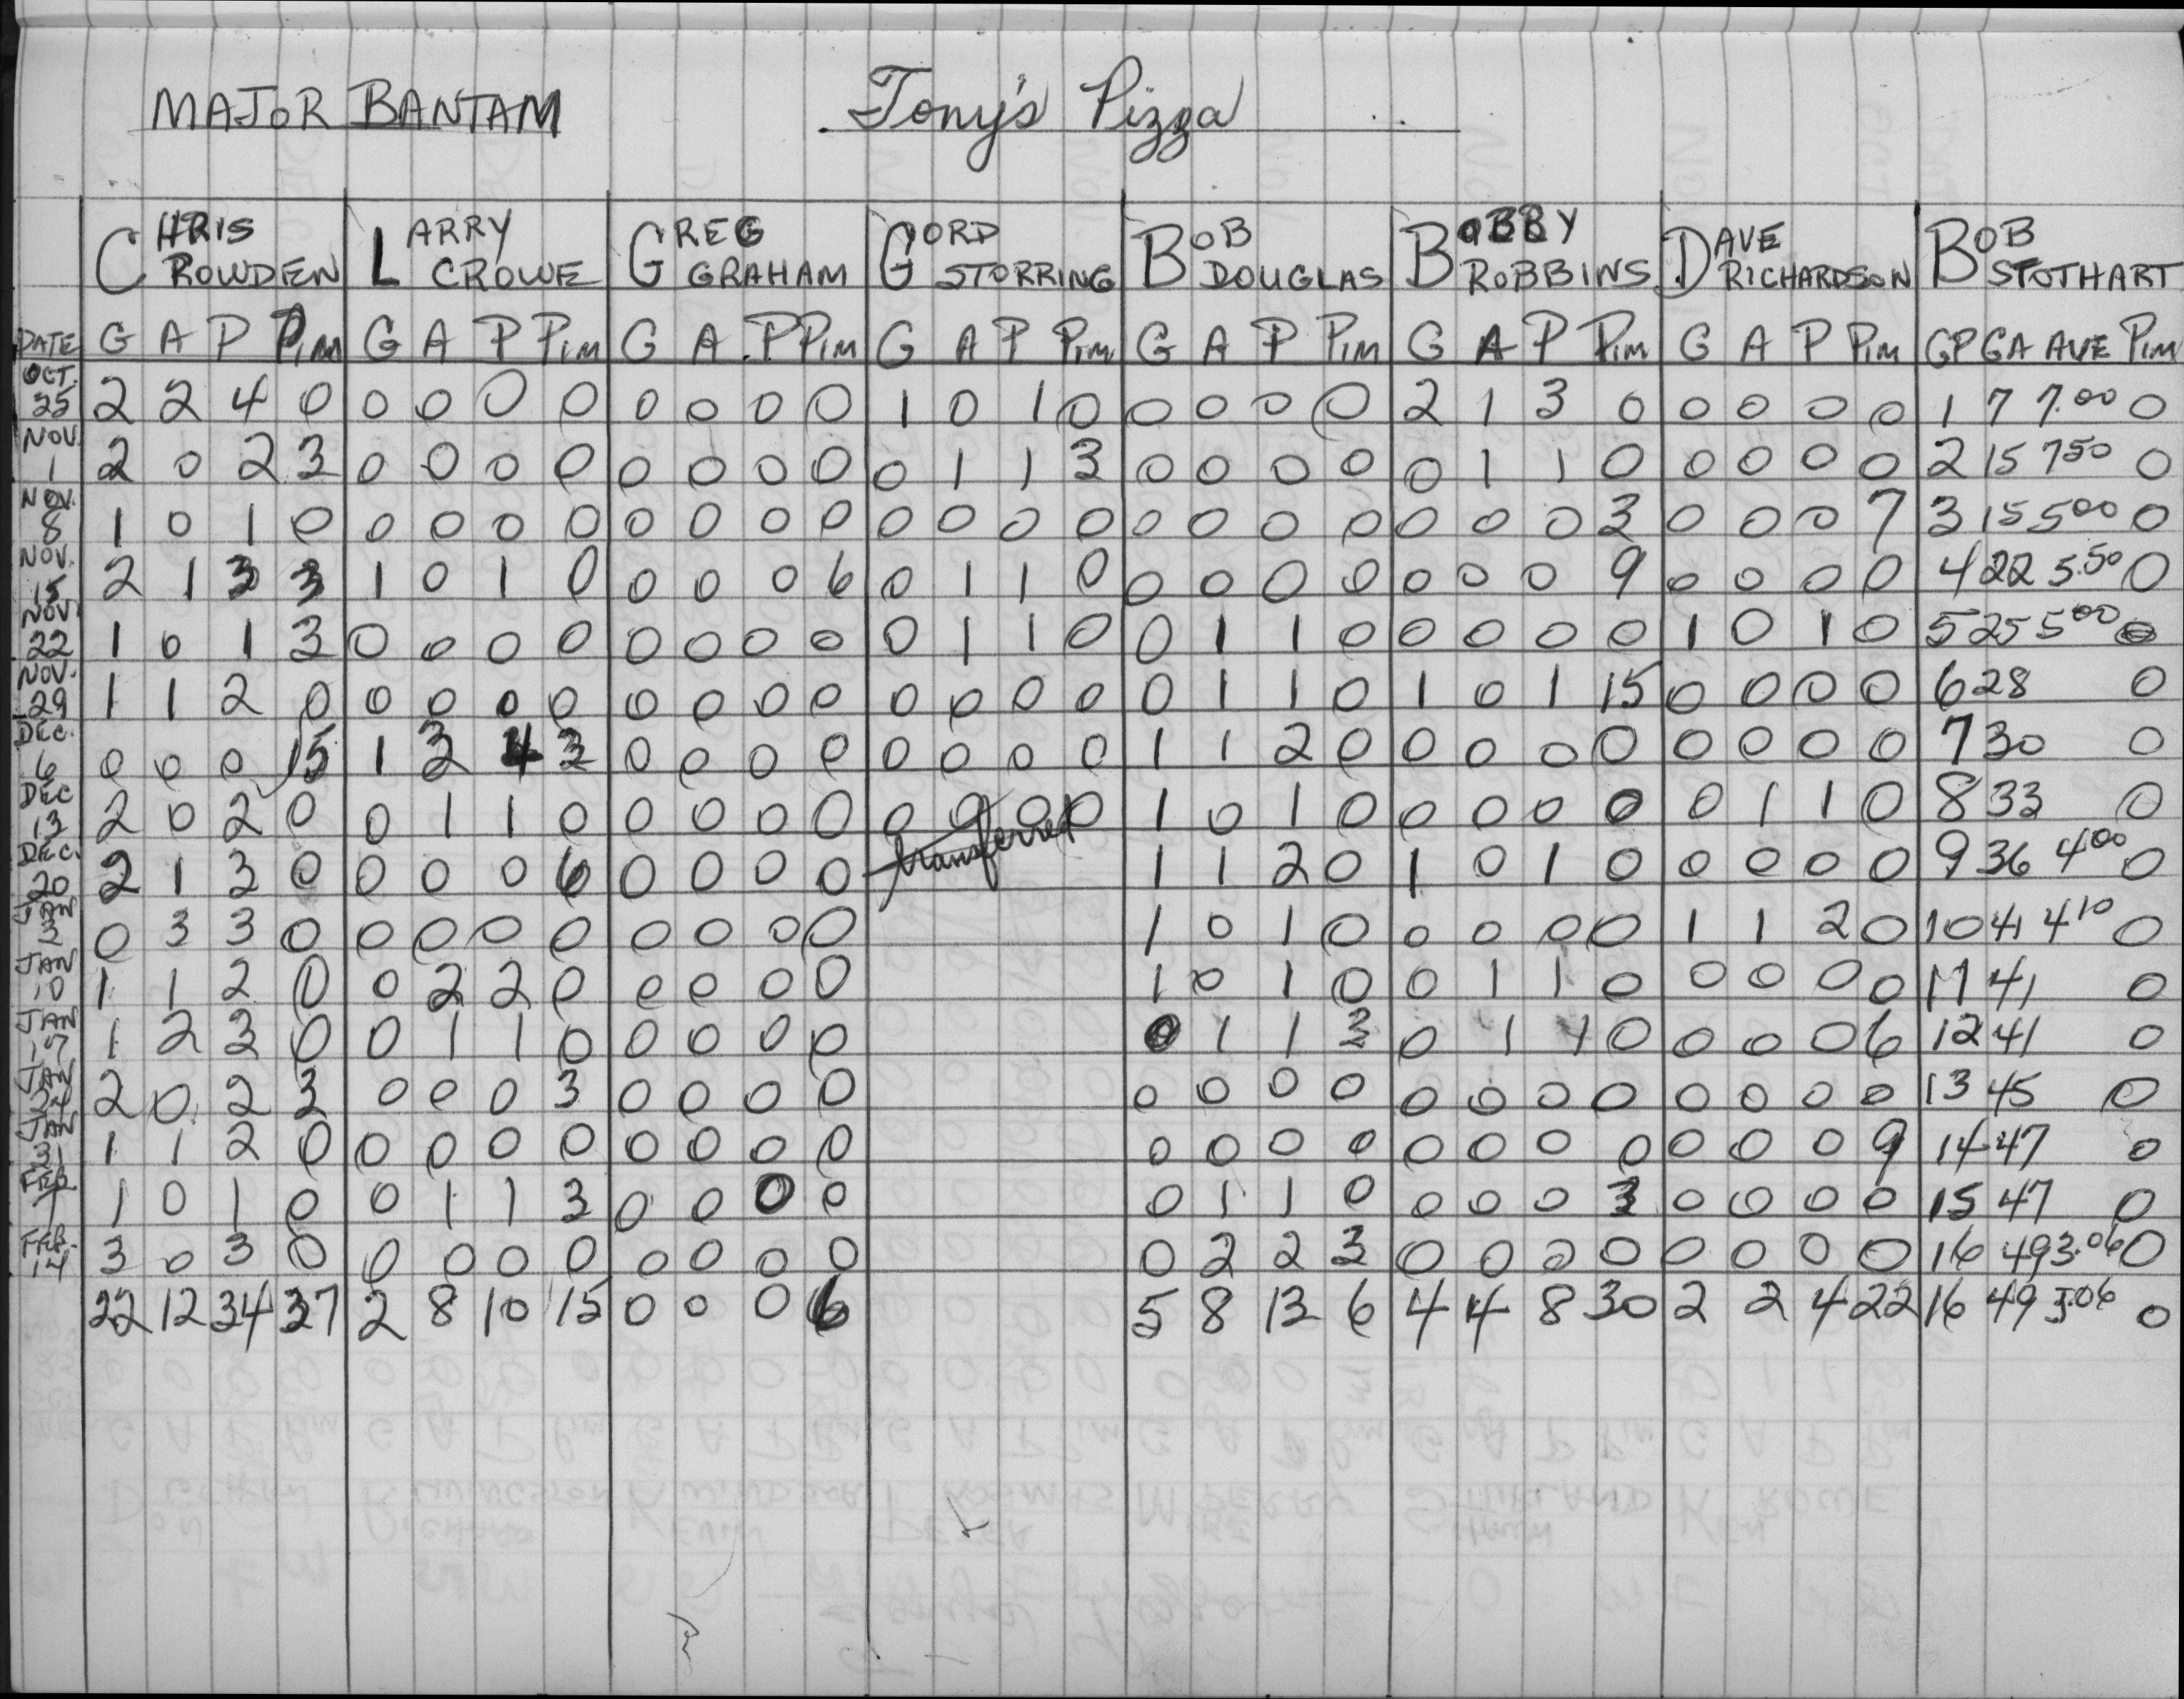 MAJOR BANTAM Tony's Pizza
CHRIS ROWDEN LARRY CROWE GREG GRAHAM GORD STORRING BOB DOUGLAS BOBBY ROBBINS DAVE RICHARDSON BOB STOTHART
DATE G A P PIM G A P PIM G A P PIM G A P PIM G A P PIM G A P PIM G A P PIM GP GA AVE PIM
OCT. 25 2 2 4 0 0 0 0 0 0 0 0 0 1 0 1 0 0 0 0 0 2 1 3 0 0 0 0 0 1 7 7.00 0
NOV. 1 2 0 2 3 0 0 0 0 0 0 0 0 0 1 1 3 0 0 0 0 0 1 1 0 0 0 0 0 2 15 750 0
NOV. 8 1 0 1 0 0 0 0 0 0 0 0 0 0 0 0 0 0 0 0 0 0 0 0 3 0 0 0 7 3 15 500 0
NOV. 15 2 1 3 3 1 0 1 0 0 0 0 6 0 1 1 0 0 0 0 0 0 0 0 9 0 0 0 0 4 22 5.50 0
NOV 22 1 0 1 3 0 0 0 0 0 0 0 0 0 1 1 0 0 1 1 0 0 0 0 0 1 0 1 0 5 25 500 0
NOV. 29 1 1 2 0 0 0 0 0 0 0 0 0 0 0 0 0 0 1 1 0 1 0 1 15 0 0 0 0 6 28 0
DEC. 6 0 0 0 15 1 3 4 3 0 0 0 0 0 0 0 0 1 1 2 0 0 0 0 0 0 0 0 0 7 30 0
DEC 13 2 0 2 0 0 1 1 0 0 0 0 0 0 0 0 0 1 0 1 0 0 0 0 0 0 1 1 0 8 33 0
DEC. 20 2 1 3 0 0 0 0 6 0 0 0 0 transferred 1 1 2 0 1 0 1 0 0 0 0 0 9 36 400 0
JAN 3 0 3 3 0 0 0 0 0 0 0 0 0 1 0 1 0 0 0 0 0 1 1 2 0 10 41 410 0
JAN 10 1 1 2 0 0 2 2 0 0 0 0 0 1 0 1 0 0 1 1 0 0 0 0 0 11 41 0
JAN 17 1 2 3 0 0 1 1 0 0 0 0 0 0 1 1 3 0 1 1 0 0 0 0 6 12 41 0
JAN 24 2 0 2 3 0 0 0 3 0 0 0 0 0 0 0 0 0 0 0 0 0 0 0 0 13 45 0
JAN 31 1 1 2 0 0 0 0 0 0 0 0 0 0 0 0 0 0 0 0 0 0 0 0 9 14 47 0
FEB 7 1 0 1 0 0 1 1 3 0 0 0 0 0 1 1 0 0 0 0 3 0 0 0 0 15 47 0
FEB. 14 3 0 3 0 0 0 0 0 0 0 0 0 0 2 2 3 0 0 0 0 0 0 0 0 16 49 3.06 0
22 12 34 37 2 8 10 15 0 0 0 6 5 8 13 6 4 4 8 30 2 2 4 22 16 49 3.06 0